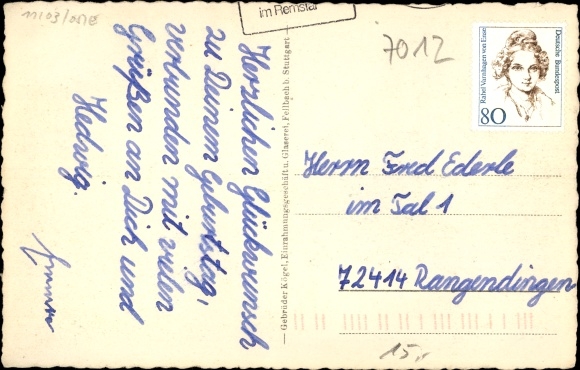 11103/018
im Remstal
7012
Deutsche Bundespost
Rahel Varnhagen von Ense
80
Herzlichen Glückwunsch
zu Deinem Geburtstag,
verbunden mit vielen
Grüßen an Dich und
Hedwig.
Gebrüder Kögel, Einrahmungsgeschäft u. Glaserei, Fellbach b. Stuttgart
Herrn Fred Ederle
im Tal 1
72414 Rangendingen
15,-